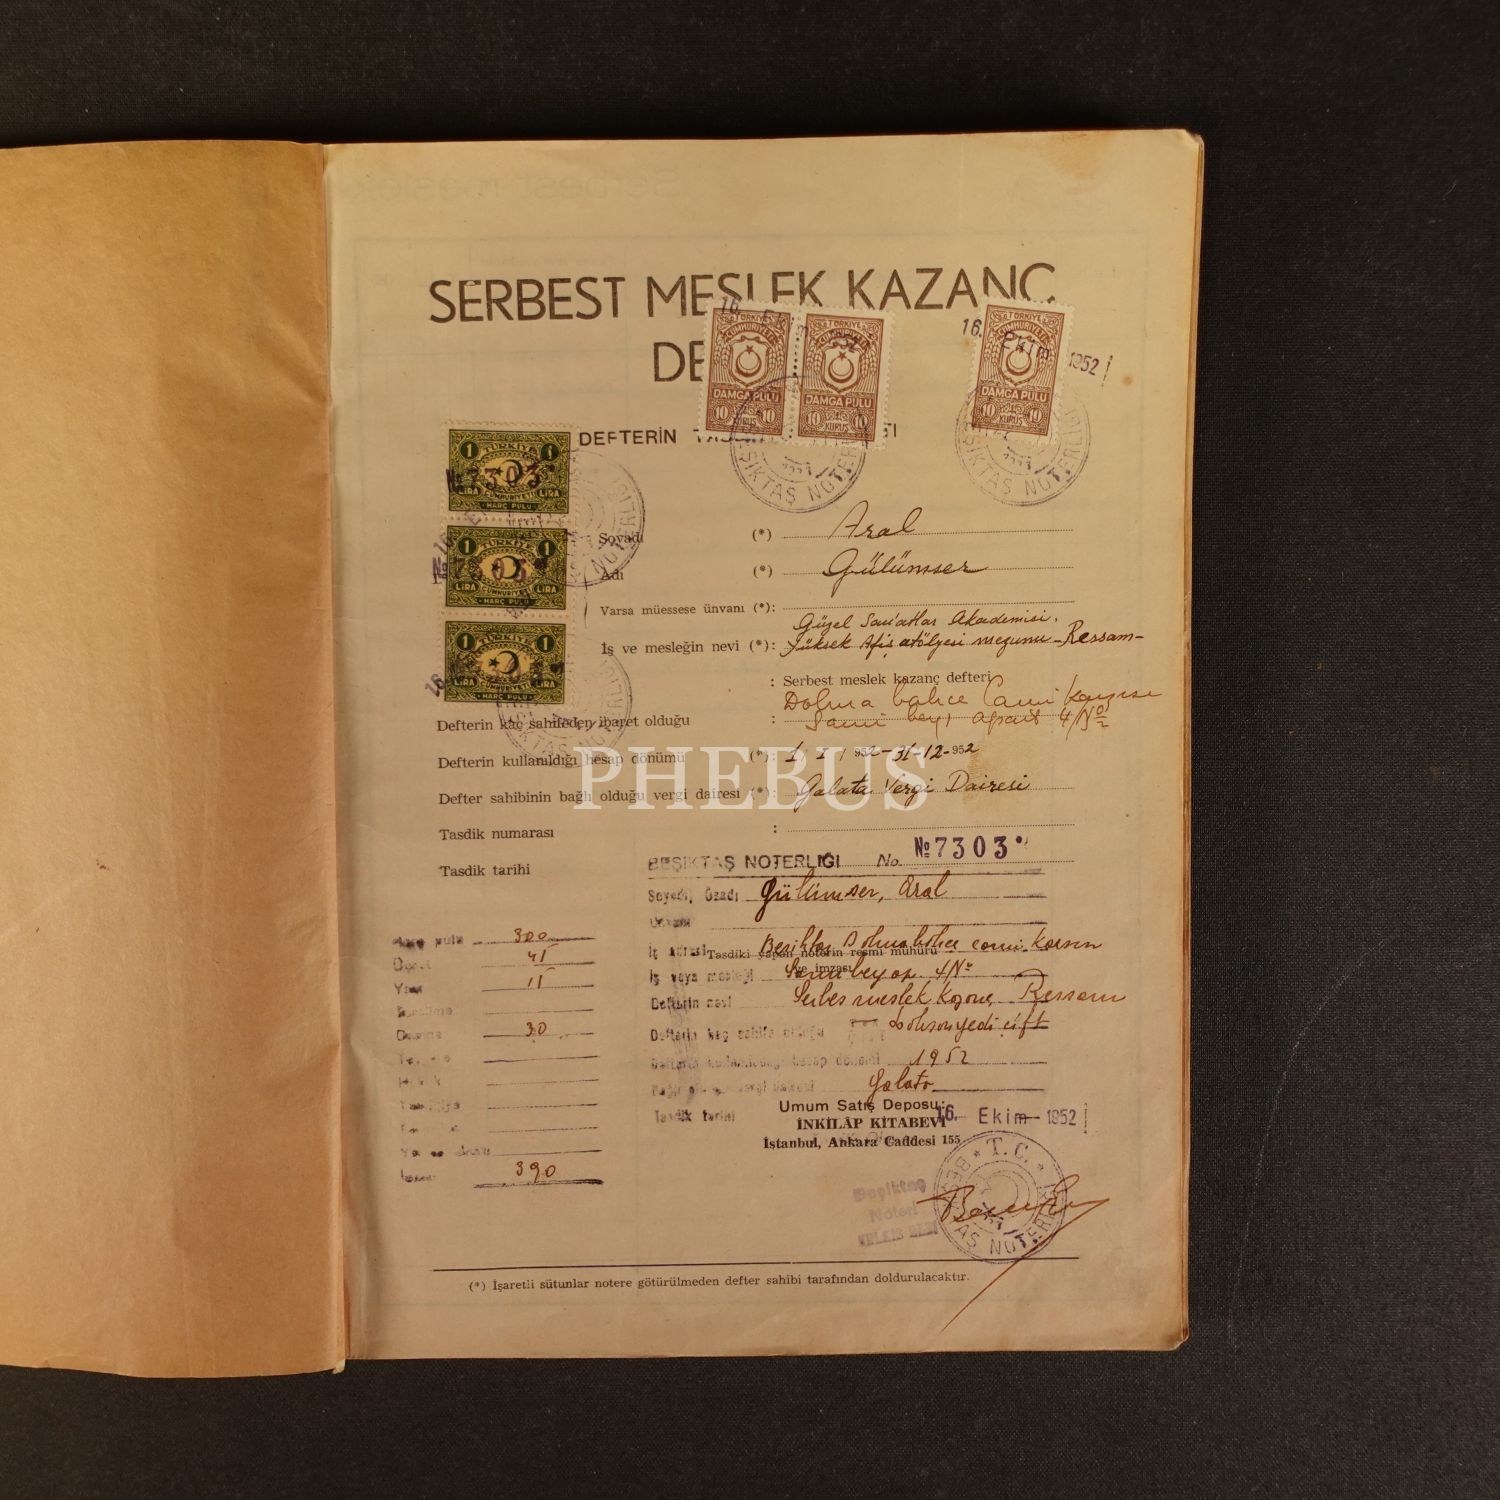 SERBEST MESLEK KAZANÇ
DE
DEFTERİN
TÜRKİYE CUMHURİYETİ DAMGA PULU 10 KURUŞ 10
TÜRKİYE CUMHURİYETİ DAMGA PULU 10 KURUŞ 10
TÜRKİYE CUMHURİYETİ DAMGA PULU 10 KURUŞ 10
16. Ekim 1952
16. Ekim 1952
BEŞİKTAŞ NOTERLİĞİ
1 TÜRKİYE 1 LİRA CUMHURİYETİ LİRA HARÇ PULU
1 TÜRKİYE 1 LİRA CUMHURİYETİ LİRA HARÇ PULU
1 TÜRKİYE 1 LİRA CUMHURİYETİ LİRA HARÇ PULU
№ 7303
Soyadı (*) Aral
Adı (*) Gülümser
Varsa müessese ünvanı (*):
Güzel San'atlar Akademisi.
İş ve mesleğin nevi (*): Yüksek Afiş atölyesi mezunu - Ressam -
: Serbest meslek kazanç defteri
Dolma bahce Cami Karşısı
Defterin kaç sahifeden ibaret olduğu : Sami bey apart 4/No
Defterin kullanıldığı hesap dönümü (*): 1/1/952-31-12-952
Defter sahibinin bağlı olduğu vergi dairesi (*): Galata Vergi Dairesi
Tasdik numarası :
Tasdik tarihi
PHEBUS
BEŞİKTAŞ NOTERLİĞİ No. № 7303
Soyadı, Özadı Gülümser, Aral
Ünvanı
İş adresi Beşiktaş Dolmabahçe cami Karşısı
Tasdiki yapan noterin resmî mühürü
ve imzası
İş veya mesleği Sami bey ap. 4/No
Defterin nevi Serbes meslek Kazanç Ressam
Defterin kaç sahife olduğu seksenyedi çift
Defterin kullanıldığı hesap dönemi 1952
Bağlı olduğu vergi dairesi Galata
Tasdik tarihi 16. Ekim 1952
Umum Satış Deposu:
İNKILÂP KİTABEVİ
İstanbul, Ankara Caddesi 155
Harç pulu 300
Ücret 45
Yazı 15
Damga 30
390
Beşiktaş
Noteri
T.C. BEŞİKTAŞ NOTERLİĞİ
(*) İşaretli sütunlar notere götürülmeden defter sahibi tarafından doldurulacaktır.